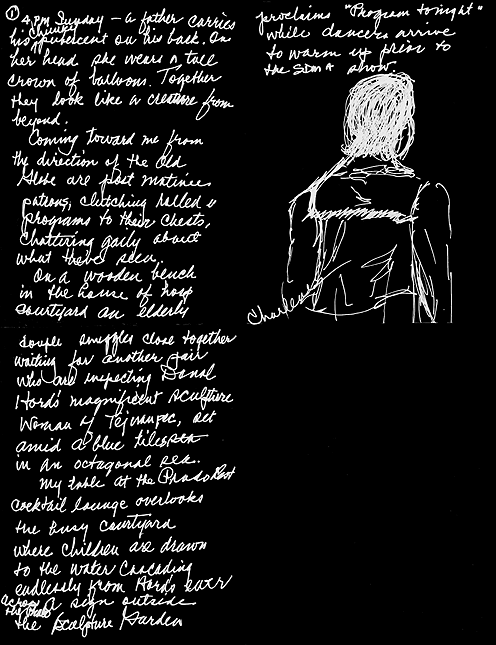 ① 4 PM Sunday – a father carries
his chunky pubescent on his back. On
her head she wears a tall
crown of balloons. Together
they look like a creature from
beyond.
Coming toward me from
the direction of the Old
Globe are post matinee
patrons, clutching rolled up
programs to their chests,
chattering gaily about
what they've seen.
On a wooden bench
in the house of hosp
courtyard an elderly
couple snuggles close together
waiting for another pair
who are inspecting Donal
Hord's magnificent sculpture
Woman of Tejuantec, set
amid a blue tile
in an octagonal sea.
My table at the Prado
cocktail lounge overlooks
the busy courtyard
where children are drawn
to the water cascading
endlessly from Hord's ewer
across the a sign outside
the Sculpture Garden
proclaims "Program tonight"
while dancers arrive
to warm up prior to
the SDMA show.
Charlene